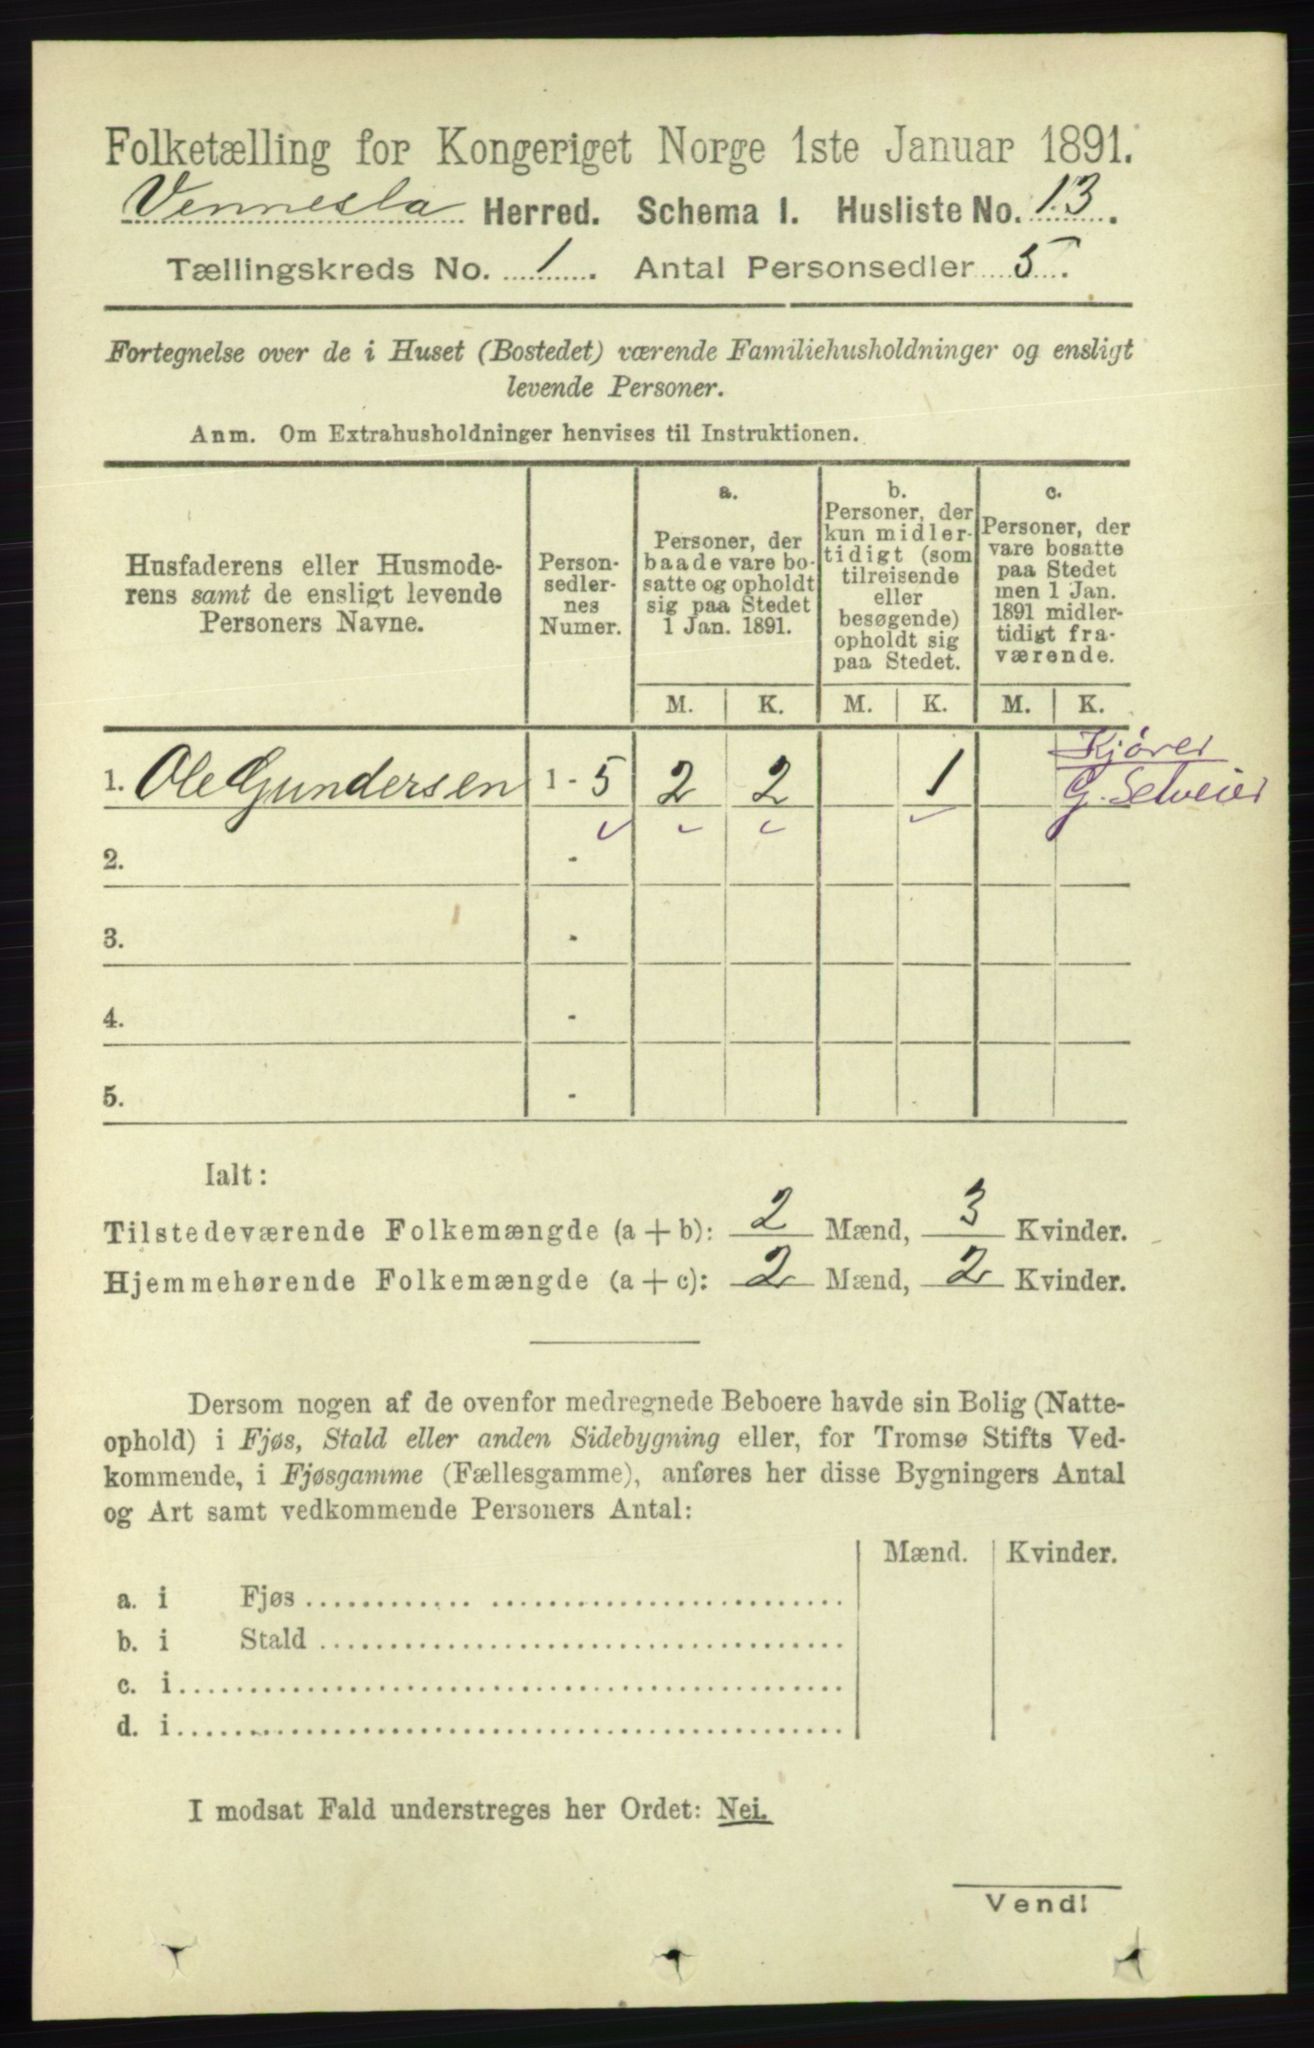 Folketælling for Kongeriget Norge 1ste Januar 1891.
Vennesla Herred. Schema 1. Husliste No. 13.
Tællingskreds No. 1. Antal Personsedler 5.
Fortegnelse over de i Huset (Bostedet) værende Familiehusholdninger og ensligt
levende Personer.
Anm. Om Extrahusholdninger henvises til Instruktionen.
Husfaderens eller Husmode-
rens samt de ensligt levende
Personers Navne.
Person-
sedler-
nes
Numer.
a.
Personer, der
baade vare bo-
satte og opholdt
sig paa Stedet
1 Jan. 1891.
b.
Personer, der
kun midler-
tidigt (som
tilreisende
eller
besøgende)
opholdt sig
paa Stedet.
c.
Personer, der
vare bosatte
paa Stedet
men 1 Jan.
1891 midler-
tidigt fra-
værende.
M. K. M. K. M. K.
Kjører
1. Ole Gundersen 1 - 5 2 2 1 G. Selveier
2. -
3. -
4. -
5. -
Ialt:
Tilstedeværende Folkemængde (a + b): 2 Mænd, 3 Kvinder.
Hjemmehørende Folkemængde (a + c): 2 Mænd, 2 Kvinder.
Dersom nogen af de ovenfor medregnede Beboere havde sin Bolig (Natte-
ophold) i Fjøs, Stald eller anden Sidebygning eller, for Tromsø Stifts Ved-
kommende, i Fjøsgamme (Fællesgamme), anføres her disse Bygningers Antal
og Art samt vedkommende Personers Antal:
Mænd. Kvinder.
a. i Fjøs
b. i Stald
c. i
d. i
I modsat Fald understreges her Ordet: Nei.
Vend!